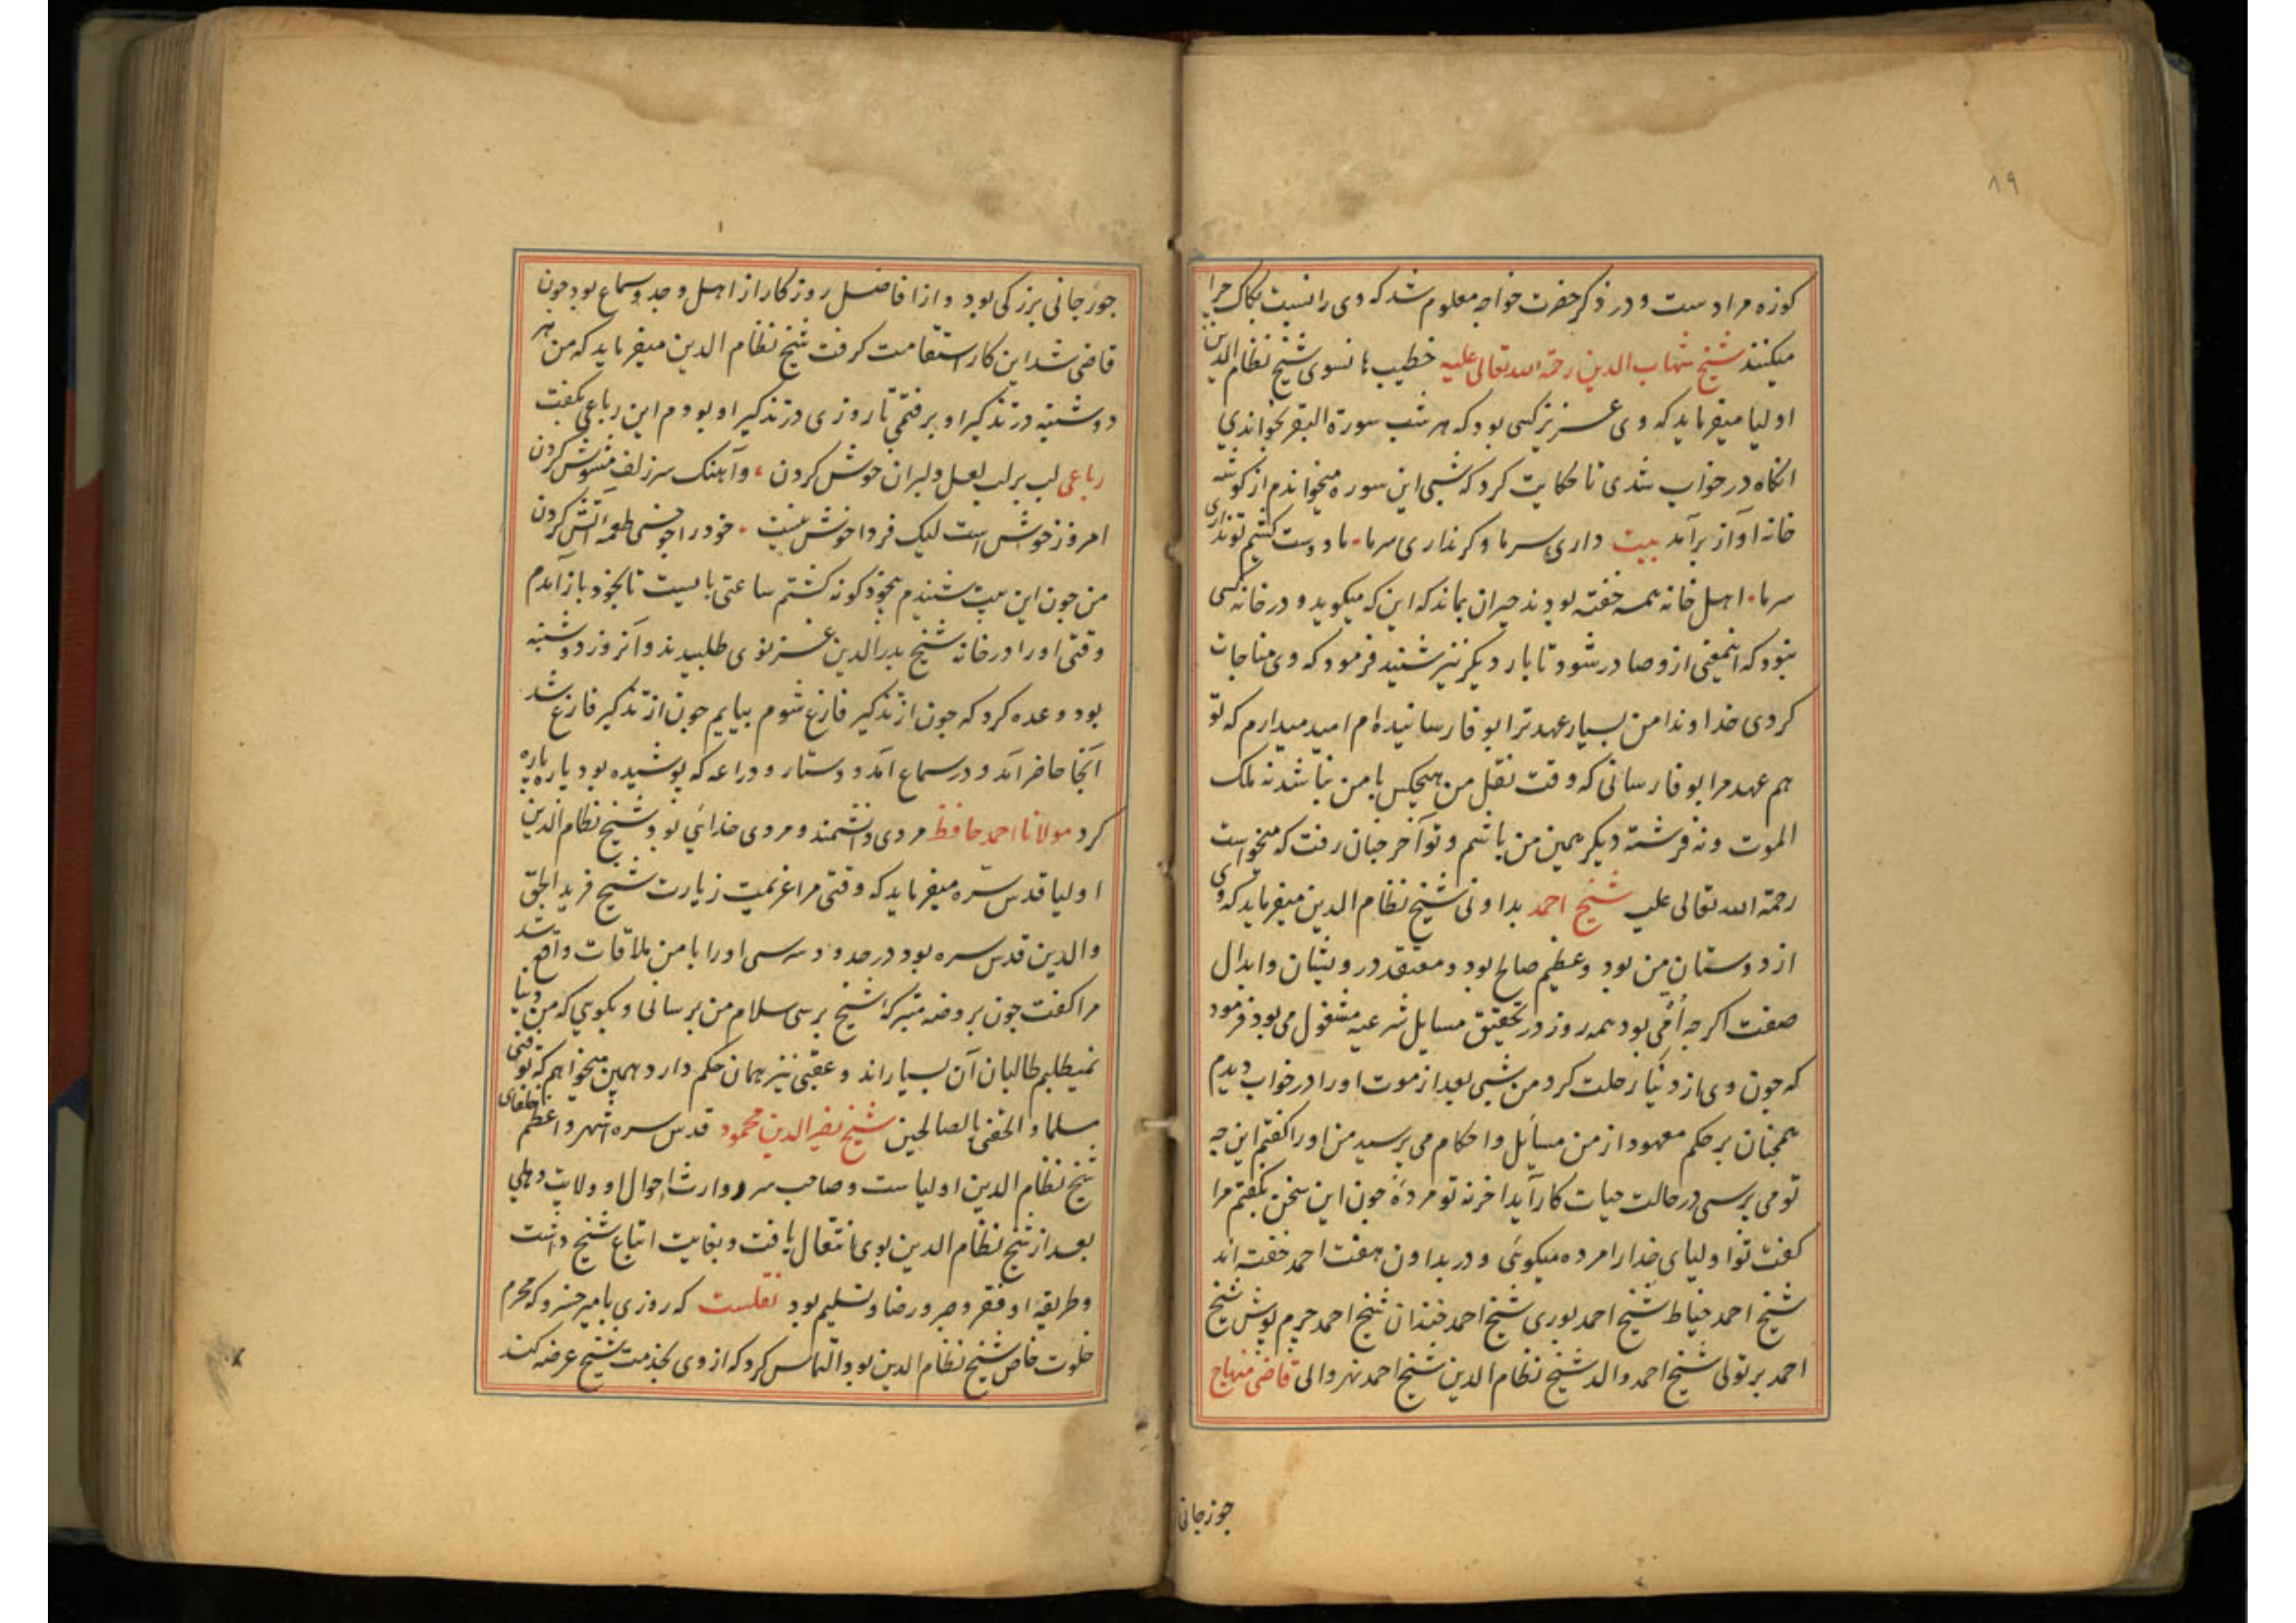 ۸۹
کوزه مرادست و در ذکر حضرت خواجه معلوم شد که وی را نسبت بکاک چرا
میکنند شیخ شهاب الدین رحمة الله تعالی علیه خطیب هانسوی شیخ نظام الدین
اولیا میفرماید که وی عزیز کسی بود که هر شب سورة البقر بخواندی
انکاه در خواب شدی تا حکایت کرد که شبی این سوره میخواندم از کوشه
خانه آواز برآمد بیت داری سر ما وکر نداری سر ما ما دوست کشیم تو نداری
سر ما اهل خانه همه خفته بودند حیران بماند که این که میکوید و در خانه کسی
نبود که اینمعنی ازو صادر شود تا بار دیکر نیز شنید فرمود که وی مناجات
کردی خداوندا من بسیار عهد ترا بوفا رسانیده ام امید میدارم که تو
هم عهد مرا بوفا رسانی که وقت نقل من هیچکس با من نباشد نه ملک
الموت و نه فرشته دیکر همین من باشم و تو آخر جنان رفت که میخواست
رحمة الله تعالی علیه شیخ احمد بداونی شیخ نظام الدین میفرماید که وی
از دوستان من بود و عظیم صالح بود و معتقد درویشان و ابدال
صفت اکرچه اُمّی بود همه روز در تحقیق مسایل شرعیه مشغول می بود فرمود
که جون وی از دنیا رحلت کرد من شبی بعد از موت او را در خواب دیدم
همجنان بر حکم معهود از من مسائل و احکام می پرسید من او را کفتم این چه
تو می پرسی در حالت حیات کار آید اخر نه تو مردهٔ جون این سخن بکفتم مرا
کفت تو اولیای خدا را مرده میکوئی و در بداون هفت احمد خفته اند
شیخ احمد خیاط شیخ احمد نوری شیخ احمد خندان شیخ احمد جرم پوش شیخ
احمد برتولی شیخ احمد والد شیخ نظام الدین شیخ احمد نهروالی قاضی منهاج
جوزجانی
جوزجانی بزرکی بود و از افاضل روزکار از اهل وجد و سماع بود جون
قاضی شد این کار استقامت کرفت شیخ نظام الدین میفرماید که من هر
دوشنبه در تذکیر او برفتمی تا روزی در تذکیر او بودم این رباعی بکفت
رباعی لب بر لب لعل دلبران خوش کردن، و آهنک سر زلف مشوش کردن
امروز خوش است لیک فردا خوش نیست خود را جو خسی طعمه آتش کردن
من جون این بیت شنیدم بیخود کونه کشتم ساعتی بایست تا بخود باز آمدم
وقتی او را در خانه شیخ بدر الدین غزنوی طلبیدند و آنروز دوشنبه
بود وعده کرد که جون از تذکیر فارغ شوم بیایم جون از تذکیر فارغ شد
آنجا حاضر آمد و در سماع آمد و دستار و دراعه که پوشیده بود پاره پاره
کرد مولانا احمد حافظ مردی دانشمند و مردی خدائی بود شیخ نظام الدین
اولیا قدس سره میفرماید که وقتی مرا عزیمت زیارت شیخ فرید الحق
والدین قدس سره بود در حدود سرسی او را با من ملاقات واقع شد
مرا کفت جون بروضه متبرکه شیخ برسی سلام من برسانی و بکوی که من دنیا
نمیطلبم طالبان آن بسیاراند و عقبی نیز همان حکم دارد همین میخواهم که توفنی
مسلما و الحقنی بالصالحین شیخ نصیر الدین محمود قدس سره اشهر و اعظم خلفای
شیخ نظام الدین اولیاست و صاحب سر و وارث احوال او ولایت دهلی
بعد از شیخ نظام الدین بوی انتقال یافت و بغایت اتباع شیخ داشت
و طریقه او فقر و صبر و رضا و تسلیم بود نقلست که روزی بامیر خسرو که محرم
خلوت خاص شیخ نظام الدین بود التماس کرد که از وی بخدمت شیخ عرضه کند